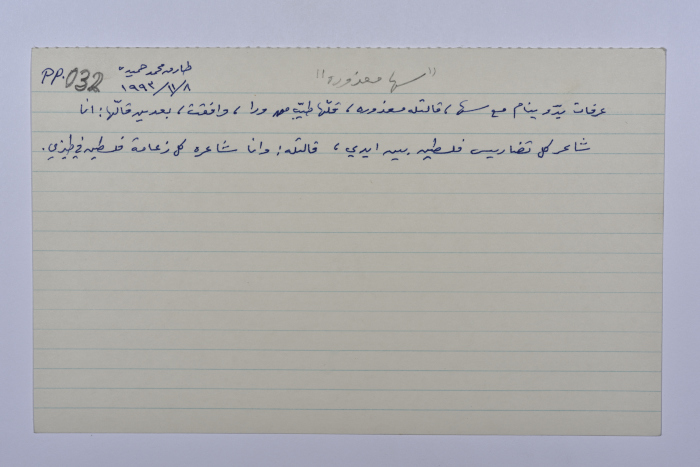 PP.032
طارق محمد حميدة
١٩٩٣/١١/٨
"سها معذوره"
عرفات بدّو ينام مع سها، قالتله معذوره، قلّها طيّب من ورا، وافقت، بعدين قالّها: انا
شاعر كل تضاريس فلسطين بين ايدي، قالتله: وانا شاعره كل زعامة فلسطين في طيزي.